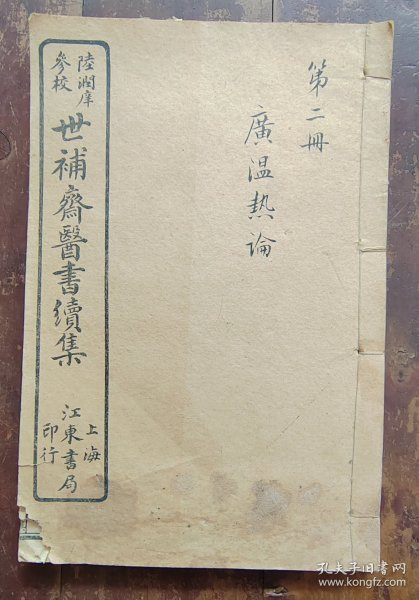 第二冊
廣温热論
陸潤庠
參校
世補齋醫書續集
上海
江東書局
印行
孔夫子旧書网
www.kongfz.com